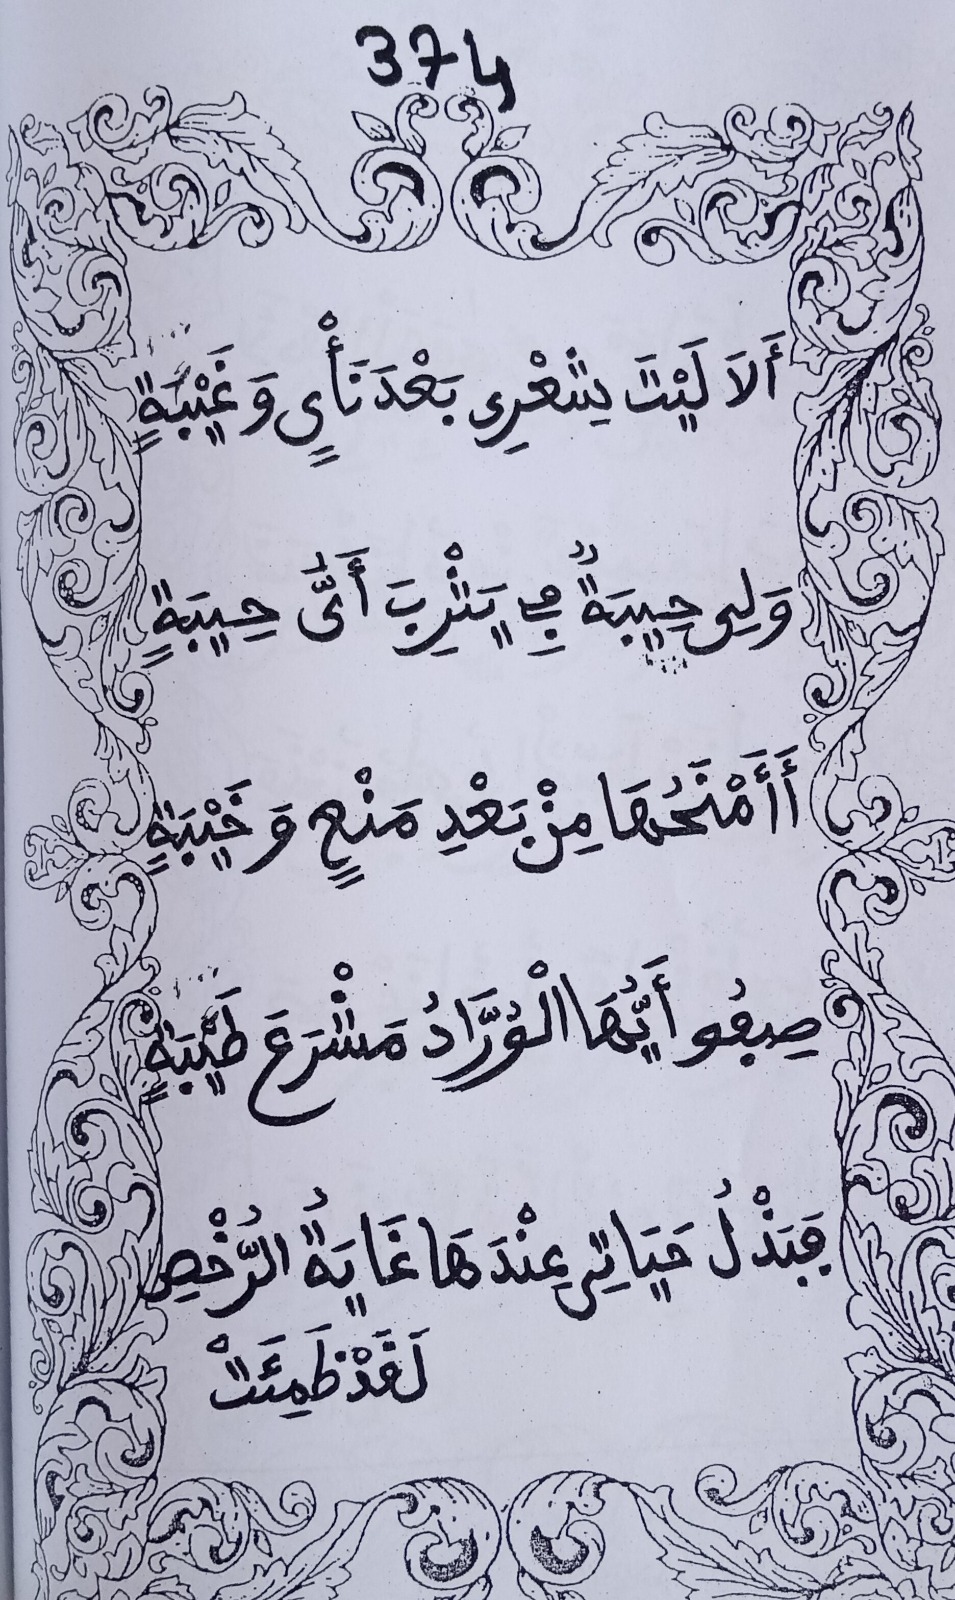 374
أَلاَ لَيْتَ شِعْرِي بَعْدَ نَأْيٍ وَغَيْبَةٍ
وَلِي حِيبَةٌ فِي يَثْرِبَ أَيُّ حِيبَةٍ
أَأَمْنَحُهَا مِنْ بَعْدِ مَنْعٍ وَخَيْبَةٍ
صِفُوا أَيُّهَا الْوُرَّادُ مَشْرَعَ طَيْبَةٍ
فَبَذْلُ حَيَاتِي عِنْدَهَا غَايَةُ الرُّخْصِ
لَقَدْ ظَمِئَتْ